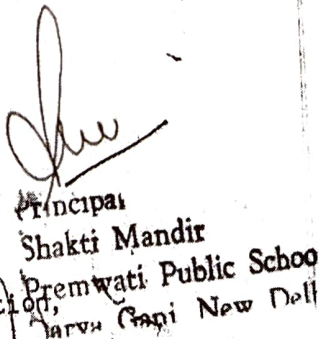 Principal
Shakti Mandir
Premwati Public Schoo
New Delh